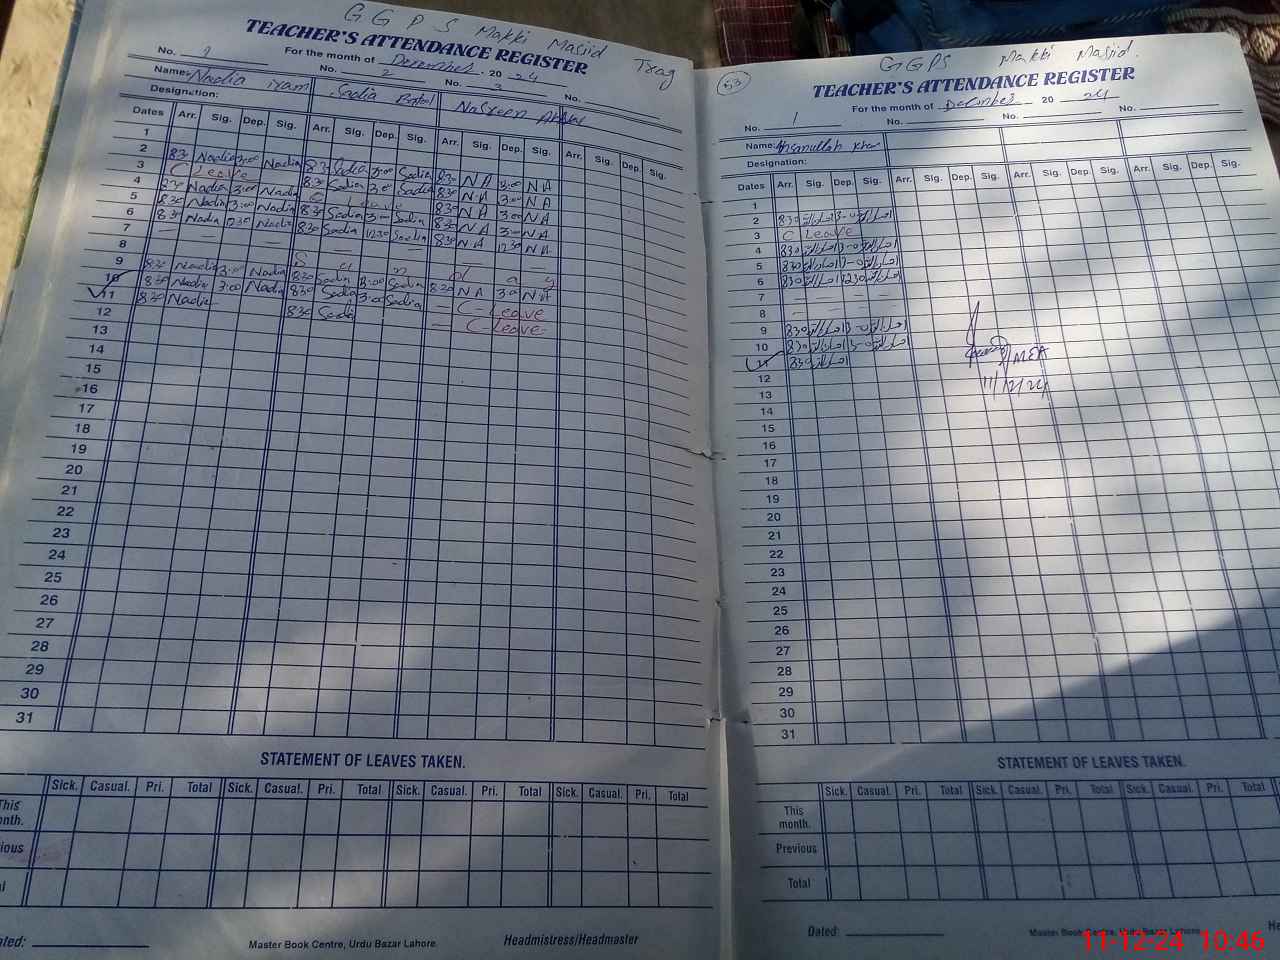 G G P S Makki Masjid
TEACHER'S ATTENDANCE REGISTER
For the month of December 2024
No. 2 No. 3 No.
Name: Nadia Sadia Nasreen
Designation:
Dates Arr. Sig. Dep. Sig. Arr. Sig. Dep. Sig. Arr. Sig. Dep. Sig. Arr. Sig. Dep. Sig.
1
2 8:30 Nadia 3:00 Nadia 8:30 Sadia 3:00 Sadia 8:30 NA 3:00 NA
3 C Leave 8:30 Sadia 3:00 Sadia 8:30 NA 3:00 NA
4 8:30 Nadia 3:00 Nadia C Leave 8:30 NA 3:00 NA
5 8:30 Nadia 3:00 Nadia 8:30 Sadia 3:00 Sadia 8:30 NA 3:00 NA
6 8:30 Nadia 12:30 Nadia 8:30 Sadia 12:30 Sadia 8:30 NA 12:30 NA
7 — — — — —
8 S u n d a y
9 8:30 Nadia 3:00 Nadia 8:30 Sadia 3:00 Sadia 8:30 NA 3:00 NA
10 8:30 Nadia 3:00 Nadia 8:30 Sadia 3:00 Sadia — C-Leave
11 8:30 Nadia 8:30 Sadia — C-Leave
12
13
14
15
16
17
18
19
20
21
22
23
24
25
26
27
28
29
30
31
STATEMENT OF LEAVES TAKEN.
Sick. Casual. Pri. Total Sick. Casual. Pri. Total Sick. Casual. Pri. Total Sick. Casual. Pri. Total
Master Book Centre, Urdu Bazar Lahore. Headmistress/Headmaster
53
GGPS Makki Masjid.
TEACHER'S ATTENDANCE REGISTER
For the month of December 2024
No. 1 No. No. No.
Name: Ahsanullah Khan
Designation:
Dates Arr. Sig. Dep. Sig. Arr. Sig. Dep. Sig. Arr. Sig. Dep. Sig. Arr. Sig. Dep. Sig.
1
2 8:30 3-0
3 C Leave
4 8:30 3-0
5 8:30 3-0
6 8:30 12:30
7 — — — —
8 — — — —
9 8:30 3-0
10 8:30 3-0
11 8:30
MEA
11/12/24
12
13
14
15
16
17
18
19
20
21
22
23
24
25
26
27
28
29
30
31
STATEMENT OF LEAVES TAKEN.
Sick. Casual. Pri. Total Sick. Casual. Pri. Total Sick. Casual. Pri.
This month.
Previous
Total
Dated:
Master Book Centre, Urdu Bazar Lahore.
11-12-24 10:46